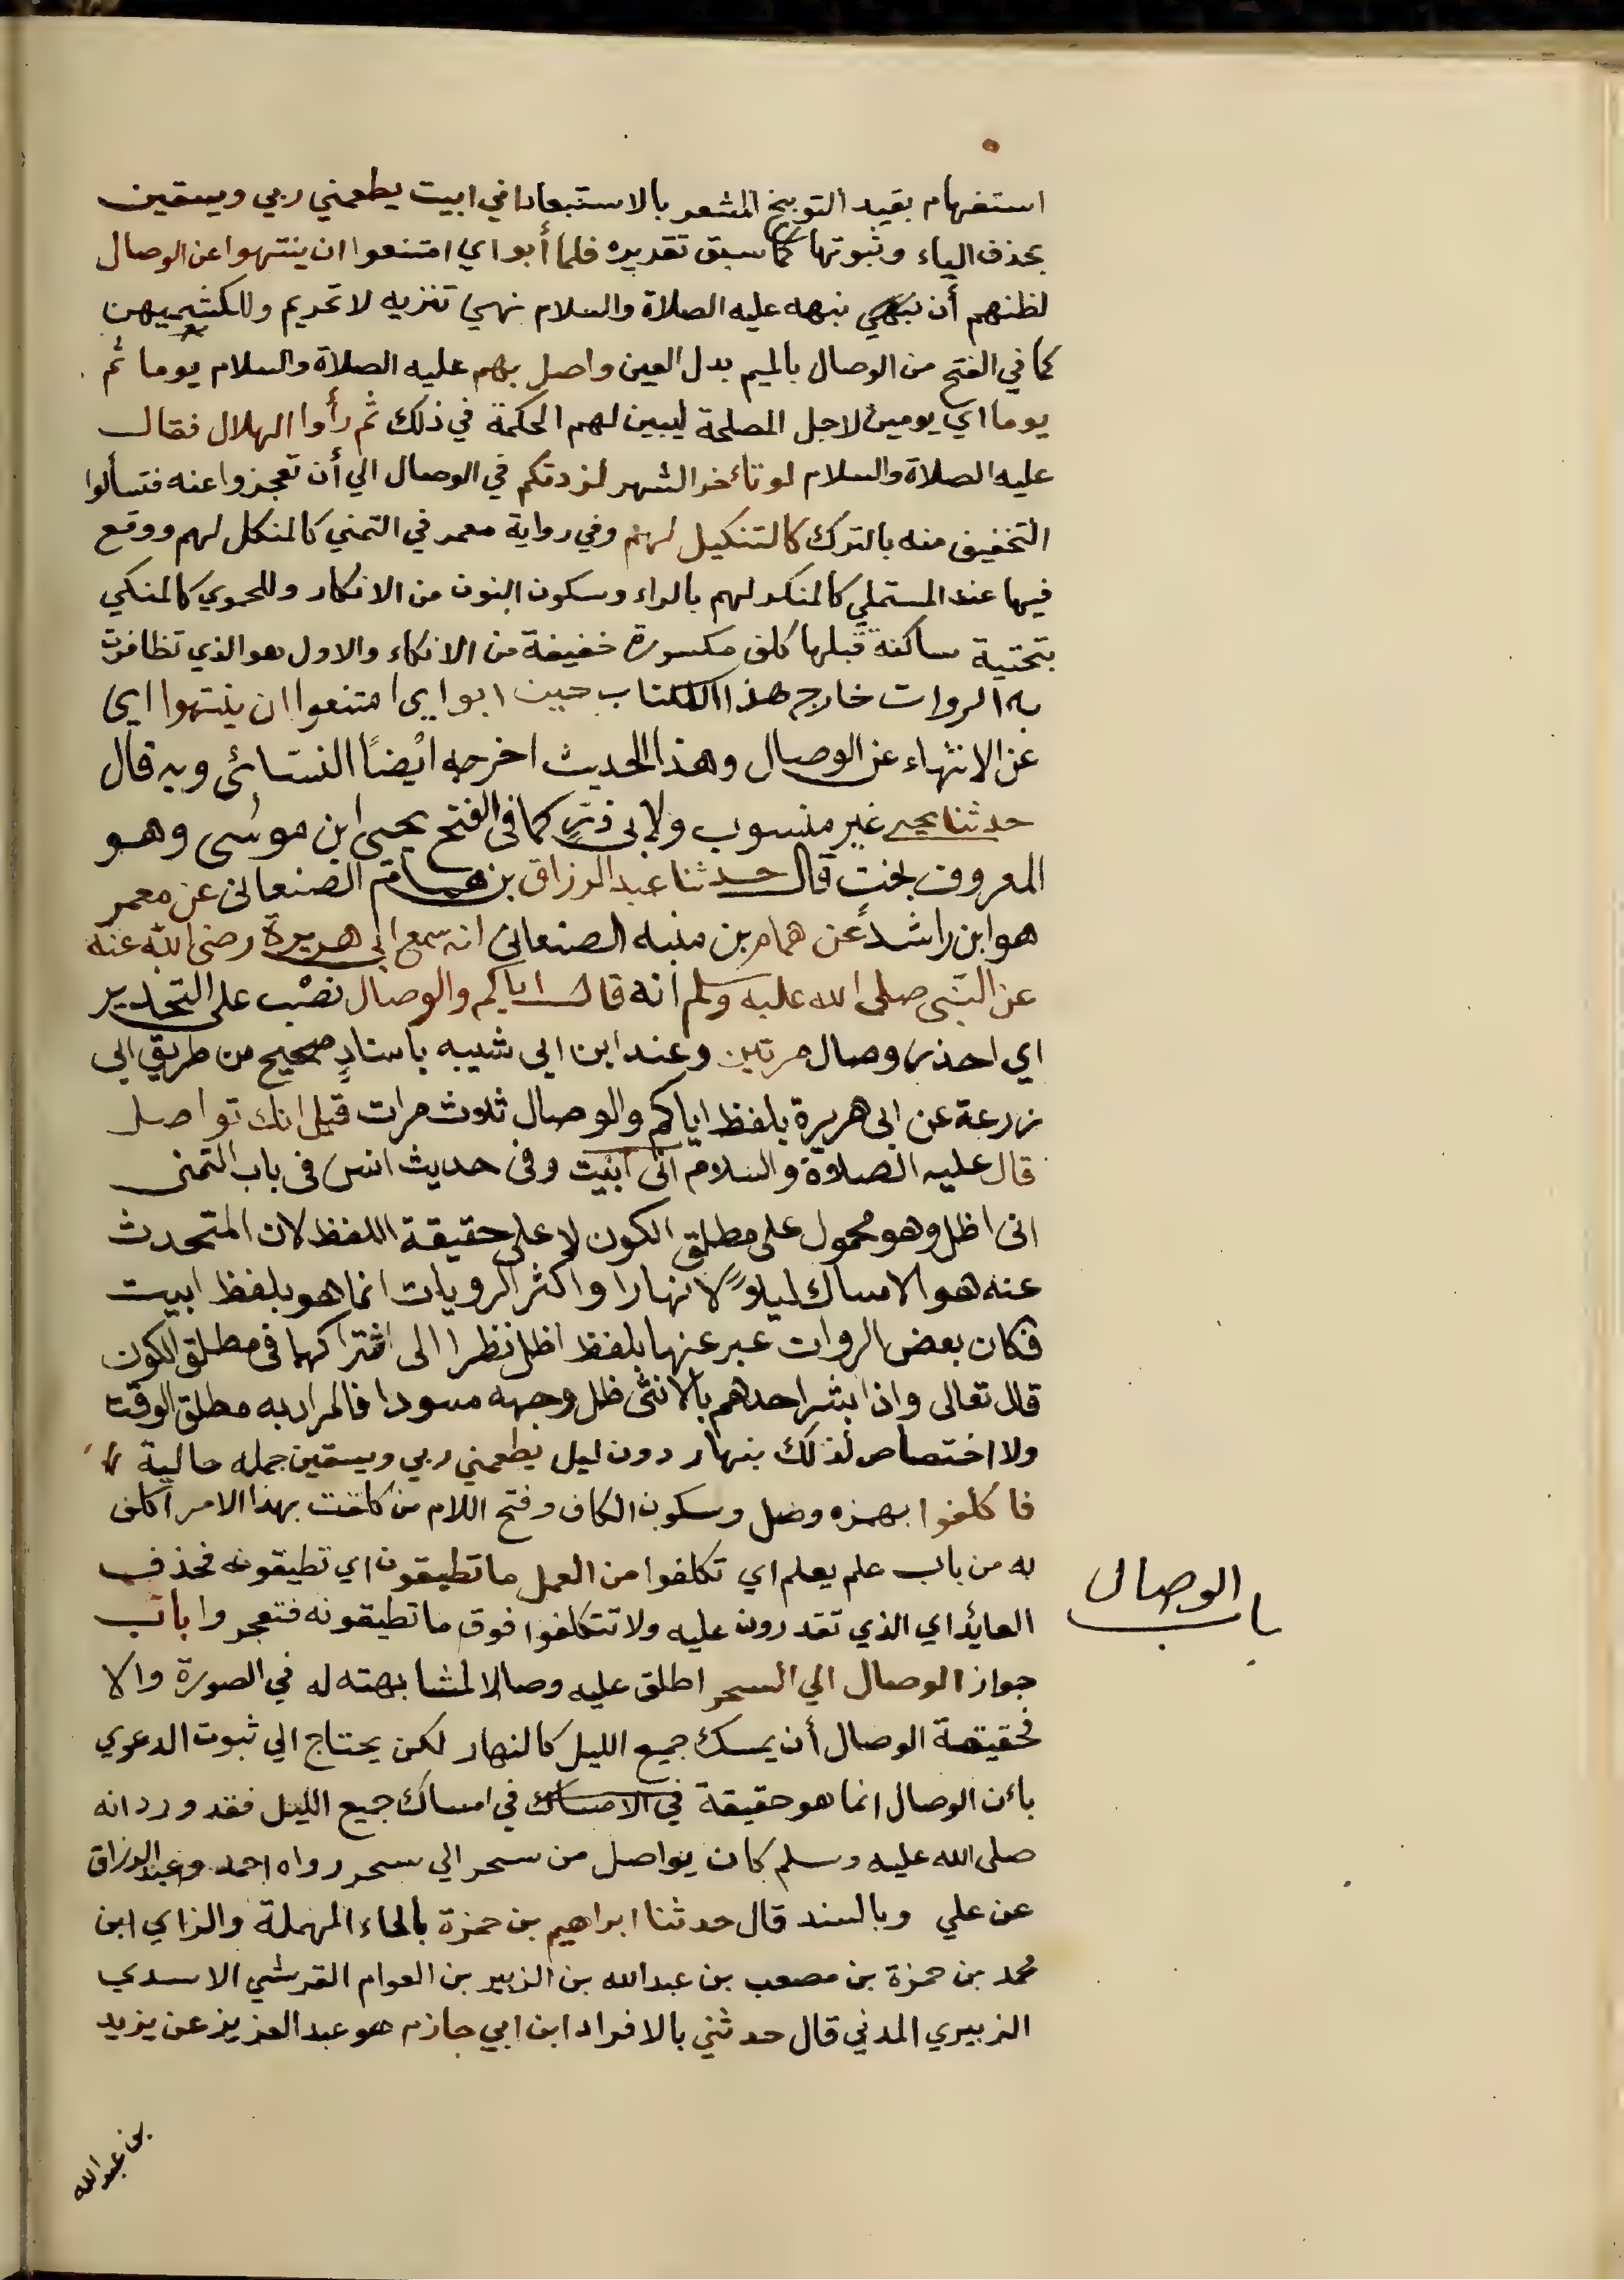 استفهام بقيد التوبيخ المشعر بالاستبعاد اني ابيت يطعمني ربي ويسقين
بحذف الياء وثبوتها كما سبق تقديره فلما أبوا اي امتنعوا ان ينتهوا عن الوصال
لظنهم أن نهي نهيه عليه الصلاة والسلام نهي تنزيه لا تحريم وللكشميهن
كما في الفتح من الوصال بالميم بدل العين واصل بهم عليه الصلاة والسلام يوما ثم
يوما اي يومين لاجل المصلحة ليبين لهم الحكمة في ذلك ثم رأوا الهلال فقال
عليه الصلاة والسلام لو تأخر الشهر لزدتكم في الوصال الي أن تعجزوا عنه فتسألوا
التخفيف منه بالترك كالتنكيل لهم وفي رواية معمر في التمني كالمنكل لهم ووقع
فيها عند المستملي كالمنكر لهم بالراء وسكون النون من الانكار وللحموي كالمنكي
بتحتية ساكنة قبلها كاف مكسورة خفيفة من الانكاء والاول هو الذي تظافرت
به الروات خارج هذا الكتاب حين ابوا اي امتنعوا ان ينتهوا اي
عن الانتهاء عن الوصال وهذا الحديث اخرجه ايضًا النسائي وبه قال
حدثنا يحيى غير منسوب ولابي ذرٍ كما في الفتح يحيى ابن موسى وهو
المعروف بخت قال حدثنا عبد الرزاق بن همام الصنعاني عن معمر
هو ابن راشد عن همام بن منبه الصنعاني انه سمع ابي هريرة رضي الله عنه
عن النبي صلى الله عليه وسلم انه قال اياكم والوصال نصْب على التحذير
اي احذر وصال مرتين وعند ابن ابي شيبه باسنادٍ صحيح من طريق ابي
زرعة عن ابي هريرة بلفظ اياكم والوصال ثلاث مرات قيل انك تواصل
قال عليه الصلاوة والسلام اني ابيت وفي حديث انس في باب التمني
اني اظل وهو محمول على مطلق الكون لا على حقيقة اللفظ لان المتحدث
عنه هو الامساك ليلاً لا نهارا واكثر الرويات انما هو بلفظ ابيت
فكان بعض الروات عبر عنها بلفظ اظل نظرا الى اشتراكهما في مطلق الكون
قال تعالى واذا بشر احدهم بالانثى ظل وجهه مسودا فالمراد به مطلق الوقت
ولا اختصاص لذلك بنهار دون ليل يطعمني ربي ويسقين جمله حالية
فاكلفوا بهمزه وصل وسكون الكاف وفتح اللام من كلفت بهذا الامر اكلف
به من باب علم يعلم اي تكلفوا من العمل ما تطيقون اي تطيقونه فحذف
العائد اي الذي تقدرون عليه ولا تتكلفوا فوق ما تطيقونه فتعجروا باب
الوصال
باب
جواز الوصال الي السحر اطلق عليه وصالا لمشابهته له في الصورة والا
فحقيقة الوصال أن يمسك جميع الليل كالنهار لكن يحتاج الي ثبوت الدعوي
بأن الوصال انما هو حقيقة في الامساك في امساك جميع الليل فقد ورد انه
صلى الله عليه وسلم كان يواصل من سحر الي سحر رواه احمد وعبد الرزاق
عن علي وبالسند قال حدثنا ابراهيم بن حمزة بالحاء المهملة والزاي ابن
محمد بن حمزة بن مصعب بن عبد الله بن الزبير بن العوام القرشي الاسدي
الزبيري المدني قال حدثني بالافراد ابن ابي حازم هو عبد العزيز عن يزيد
بن عبد الله